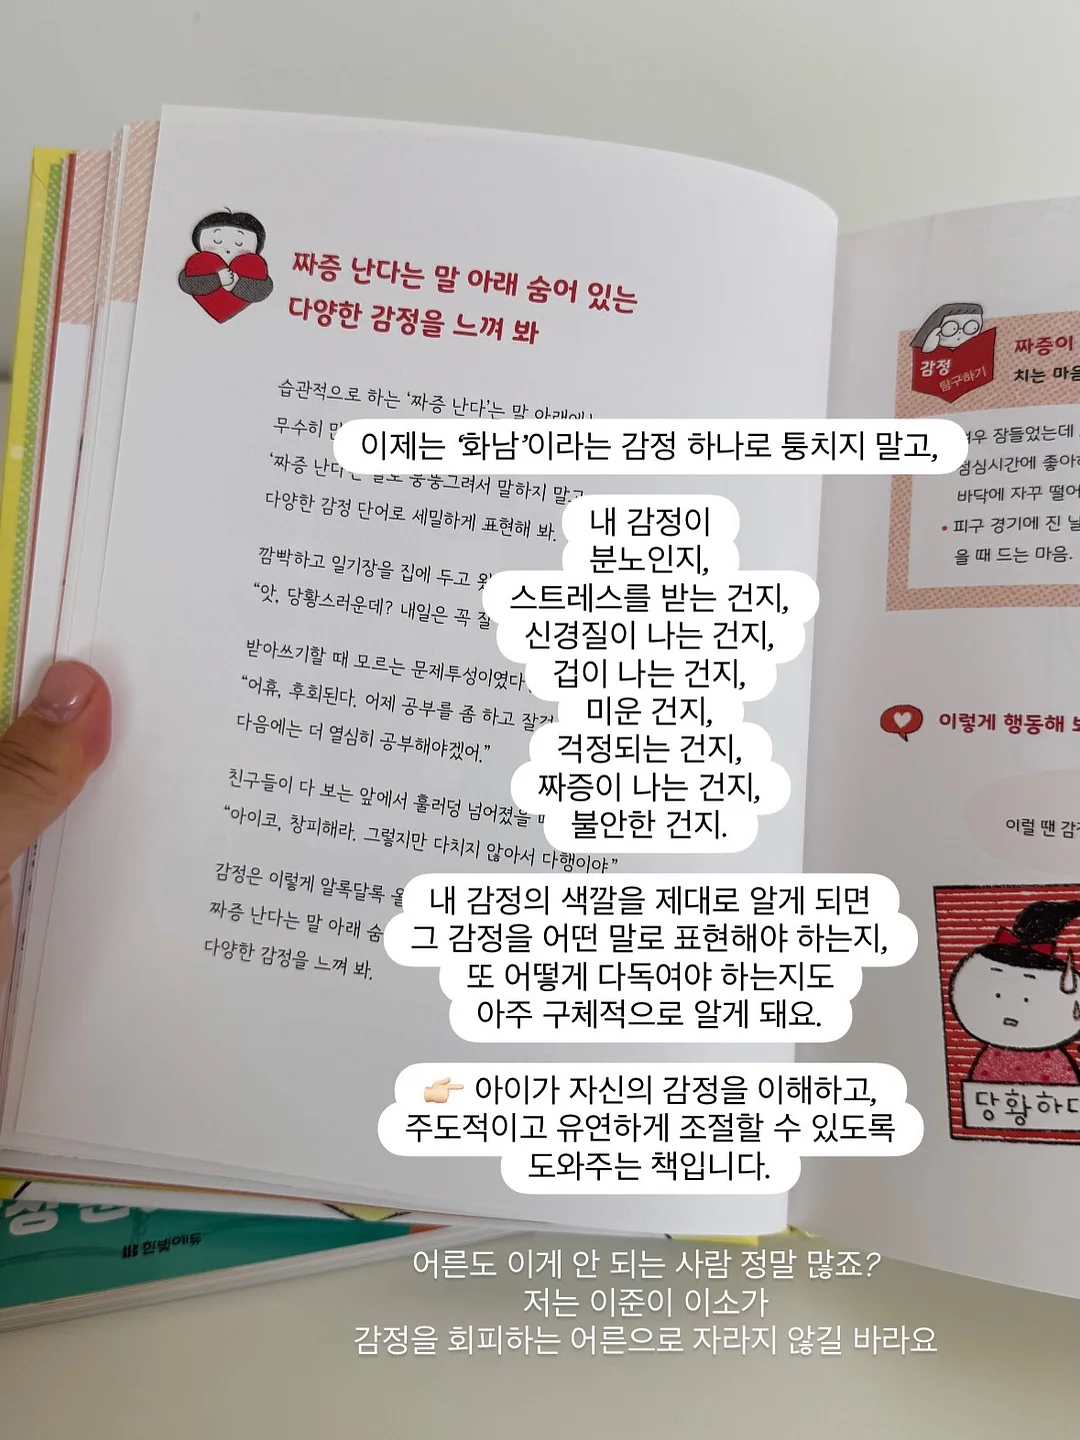 짜증 난다는 말 아래 숨어 있는
다양한 감정을 느껴 봐
습관적으로 하는 ‘짜증 난다’는 말 아래에는
무수히
‘짜증 난다’는 말로 뭉뚱그려서 말하지 말고
다양한 감정 단어로 세밀하게 표현해 봐.
깜빡하고 일기장을 집에 두고
“앗, 당황스러운데? 내일은 꼭
받아쓰기할 때 모르는 문제투성이였다
“어휴, 후회된다. 어제 공부를 좀 하고 잘걸
다음에는 더 열심히 공부해야겠어.”
친구들이 다 보는 앞에서 훌러덩 넘어졌을
“아이코, 창피해라. 그렇지만 다치지 않아서 다행이야”
감정은 이렇게 알록달록
짜증 난다는 말 아래
다양한 감정을 느껴 봐.
이제는 ‘화남’이라는 감정 하나로 퉁치지 말고,
내 감정이
분노인지,
스트레스를 받는 건지,
신경질이 나는 건지,
겁이 나는 건지,
미운 건지,
걱정되는 건지,
짜증이 나는 건지,
불안한 건지.
내 감정의 색깔을 제대로 알게 되면
그 감정을 어떤 말로 표현해야 하는지,
또 어떻게 다독여야 하는지도
아주 구체적으로 알게 돼요.
👉🏻 아이가 자신의 감정을 이해하고,
주도적이고 유연하게 조절할 수 있도록
도와주는 책입니다.
감정
탐구하기
짜증이
치는 마음
겨우 잠들었는데
점심시간에 좋아하
바닥에 자꾸 떨어
• 피구 경기에 진 날
을 때 드는 마음.
이렇게 행동해 보
이럴 땐 감정
당황하다
한빛에듀
어른도 이게 안 되는 사람 정말 많죠?
저는 이준이 이소가
감정을 회피하는 어른으로 자라지 않길 바라요